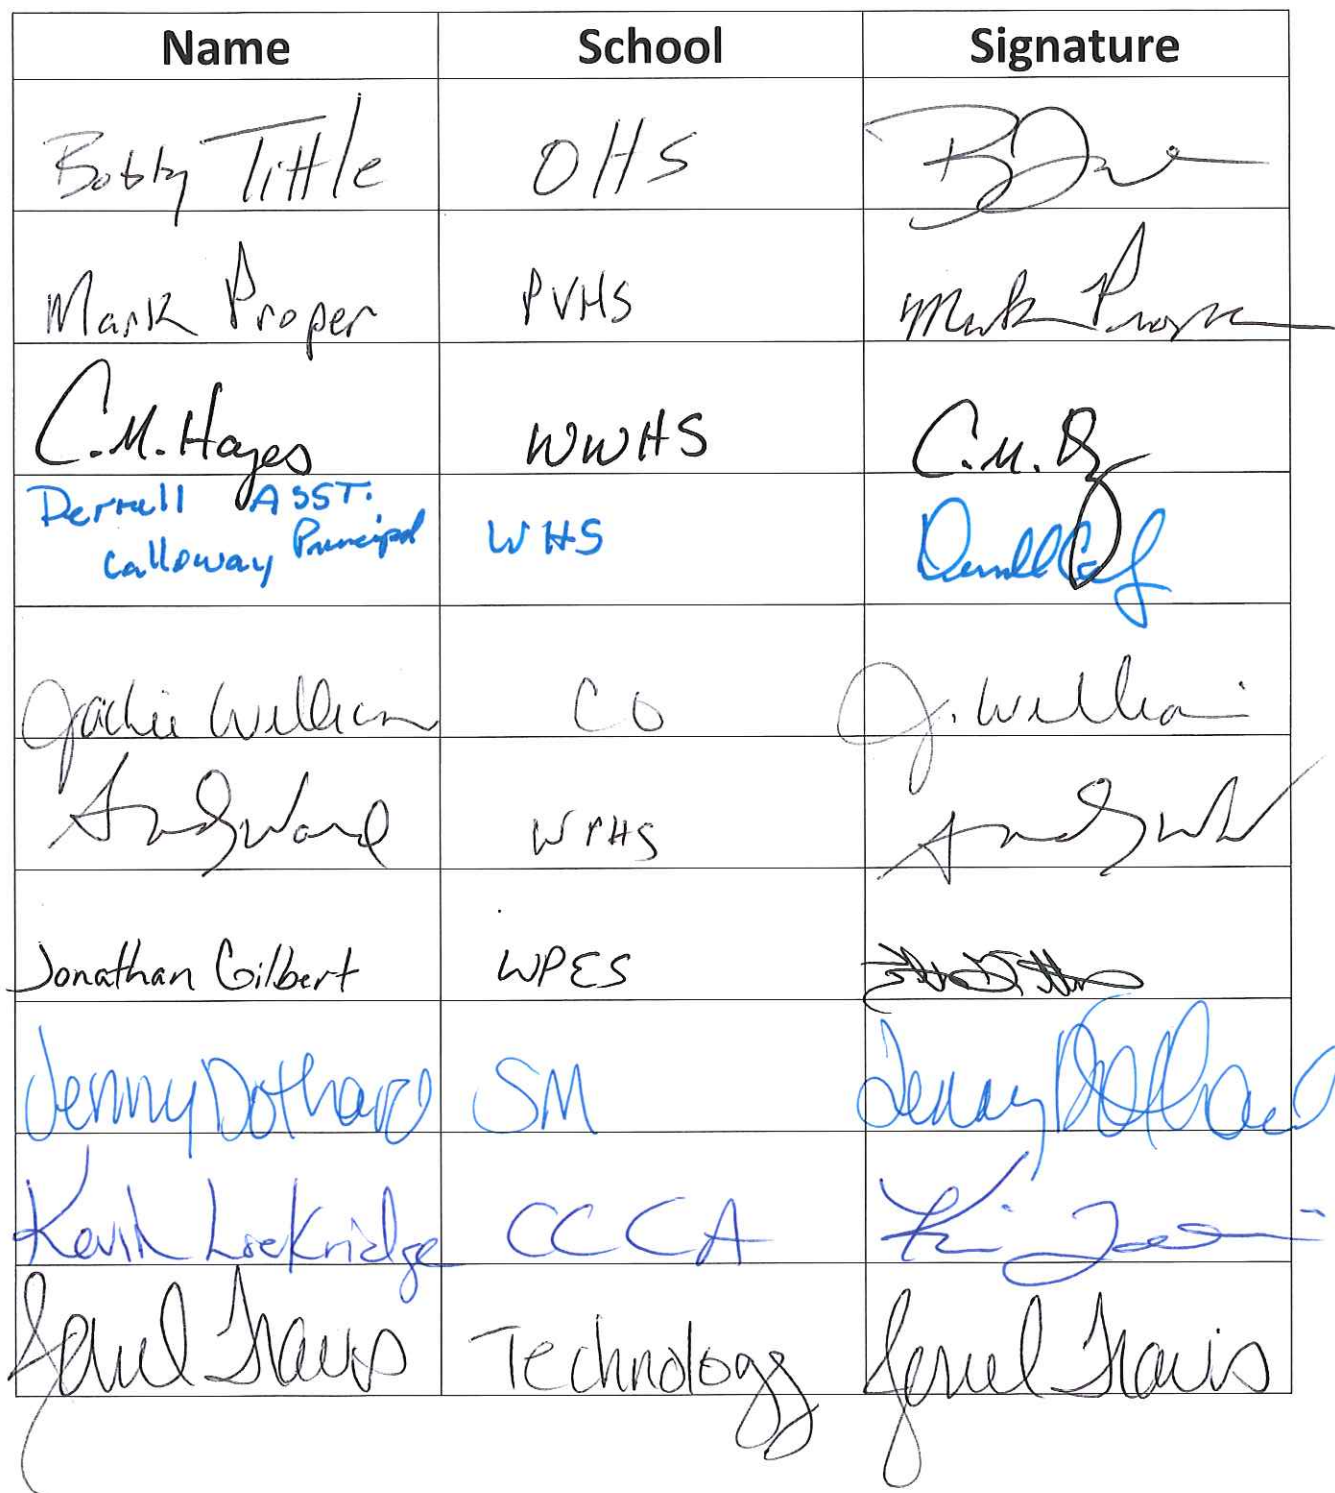 Name School Signature
Bobby Tittle OHS
Mark Proper PVHS Mark Proper
C.M. Hayes WWHS C.M.
Derrell ASST.
Calloway Principal WHS
Jackie William CO J. William
Andy Ward WPHS
Jonathan Gilbert WPES
Jenny Dothard SM Jenny Dothard
Kevin Lockridge CCCA
Travis Technology Travis